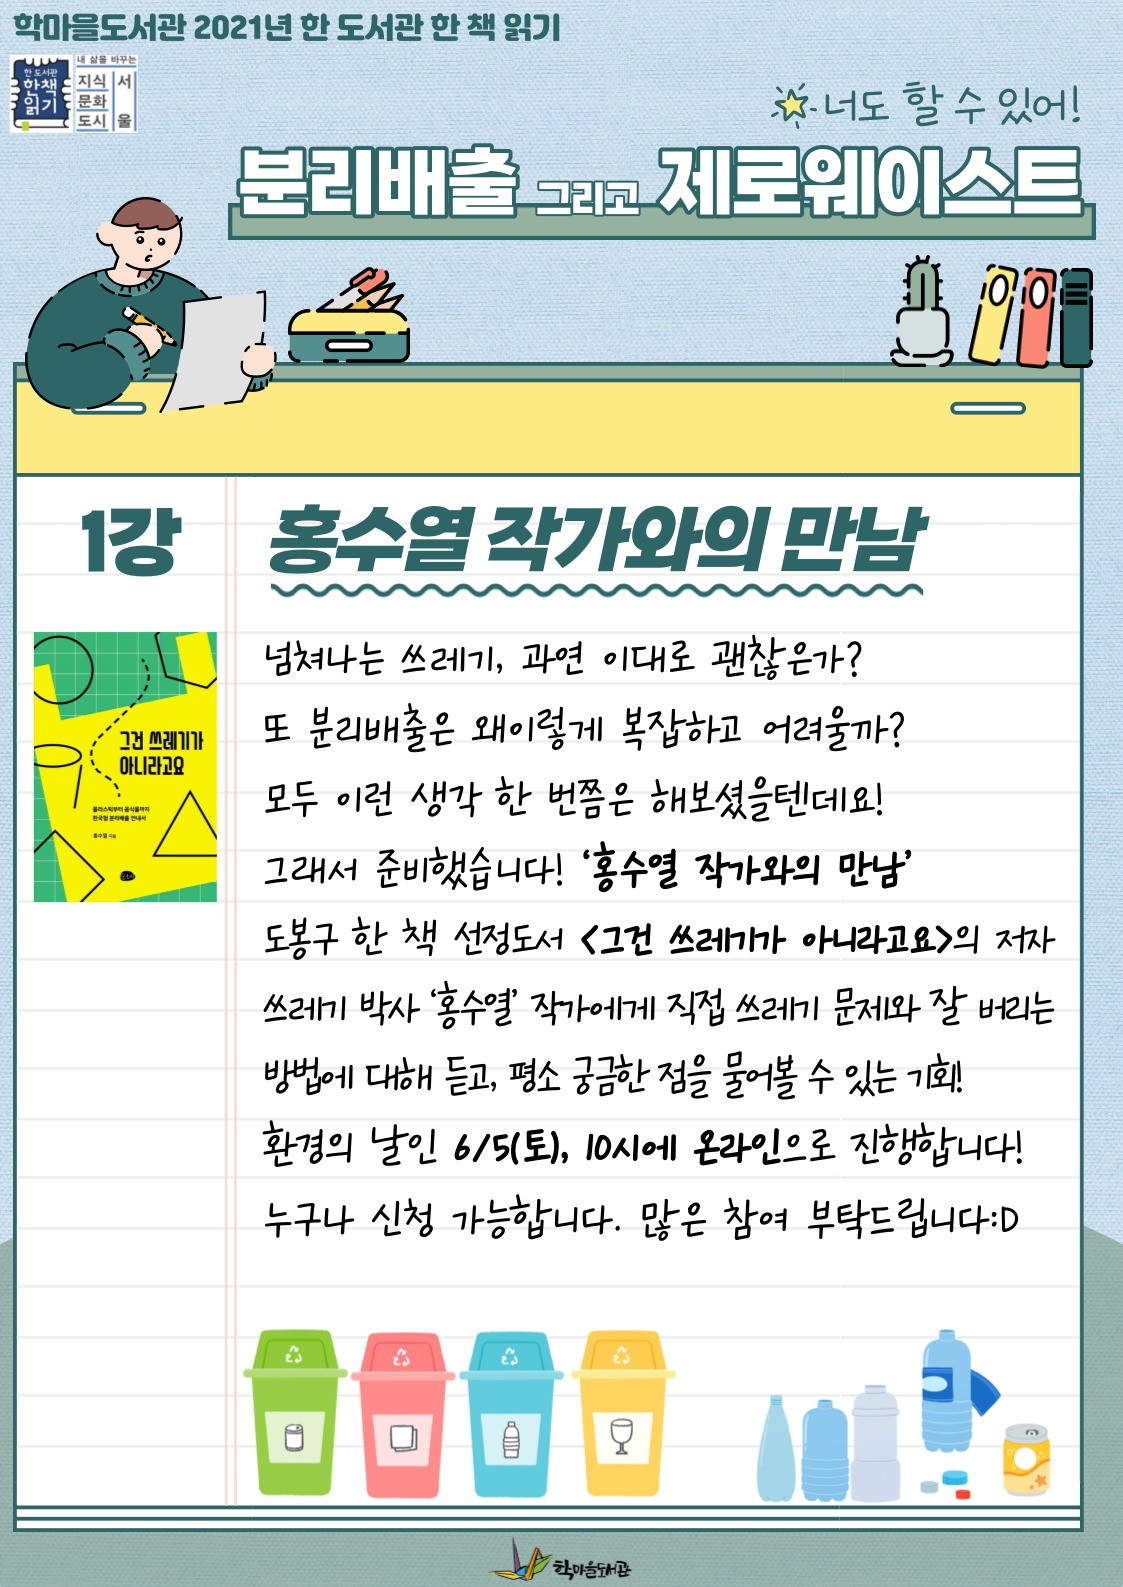 학마을도서관 2021년 한 도서관 한 책 읽기
한 도서관
한책
읽기
내 삶을 바꾸는
지식
문화
도시
서
울
너도 할 수 있어!
분리배출 그리고 제로웨이스트
1강
홍수열 작가와의 만남
그건 쓰레기가
아니라고요
플라스틱부터 음식물까지
한국형 분리배출 안내서
홍수열 지음
넘쳐나는 쓰레기, 과연 이대로 괜찮은가?
또 분리배출은 왜이렇게 복잡하고 어려울까?
모두 이런 생각 한 번쯤은 해보셨을텐데요!
그래서 준비했습니다! ‘홍수열 작가와의 만남’
도봉구 한 책 선정도서 <그건 쓰레기가 아니라고요>의 저자
쓰레기 박사 ‘홍수열’ 작가에게 직접 쓰레기 문제와 잘 버리는
방법에 대해 듣고, 평소 궁금한 점을 물어볼 수 있는 기회!
환경의 날인 6/5(토), 10시에 온라인으로 진행합니다!
누구나 신청 가능합니다. 많은 참여 부탁드립니다:D
학마을도서관